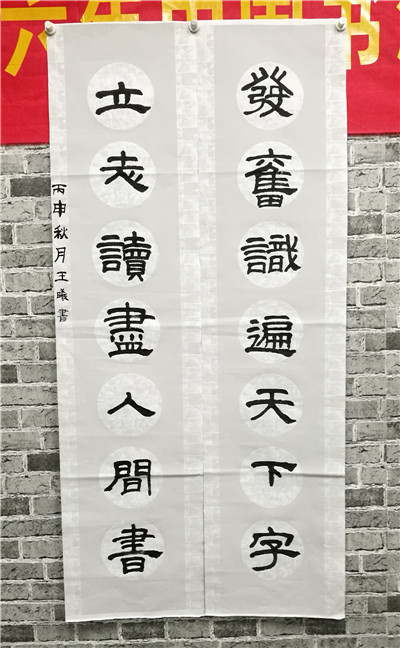 六年中国书
發奮識遍天下字
立志讀盡人間書
丙申秋月王曦書